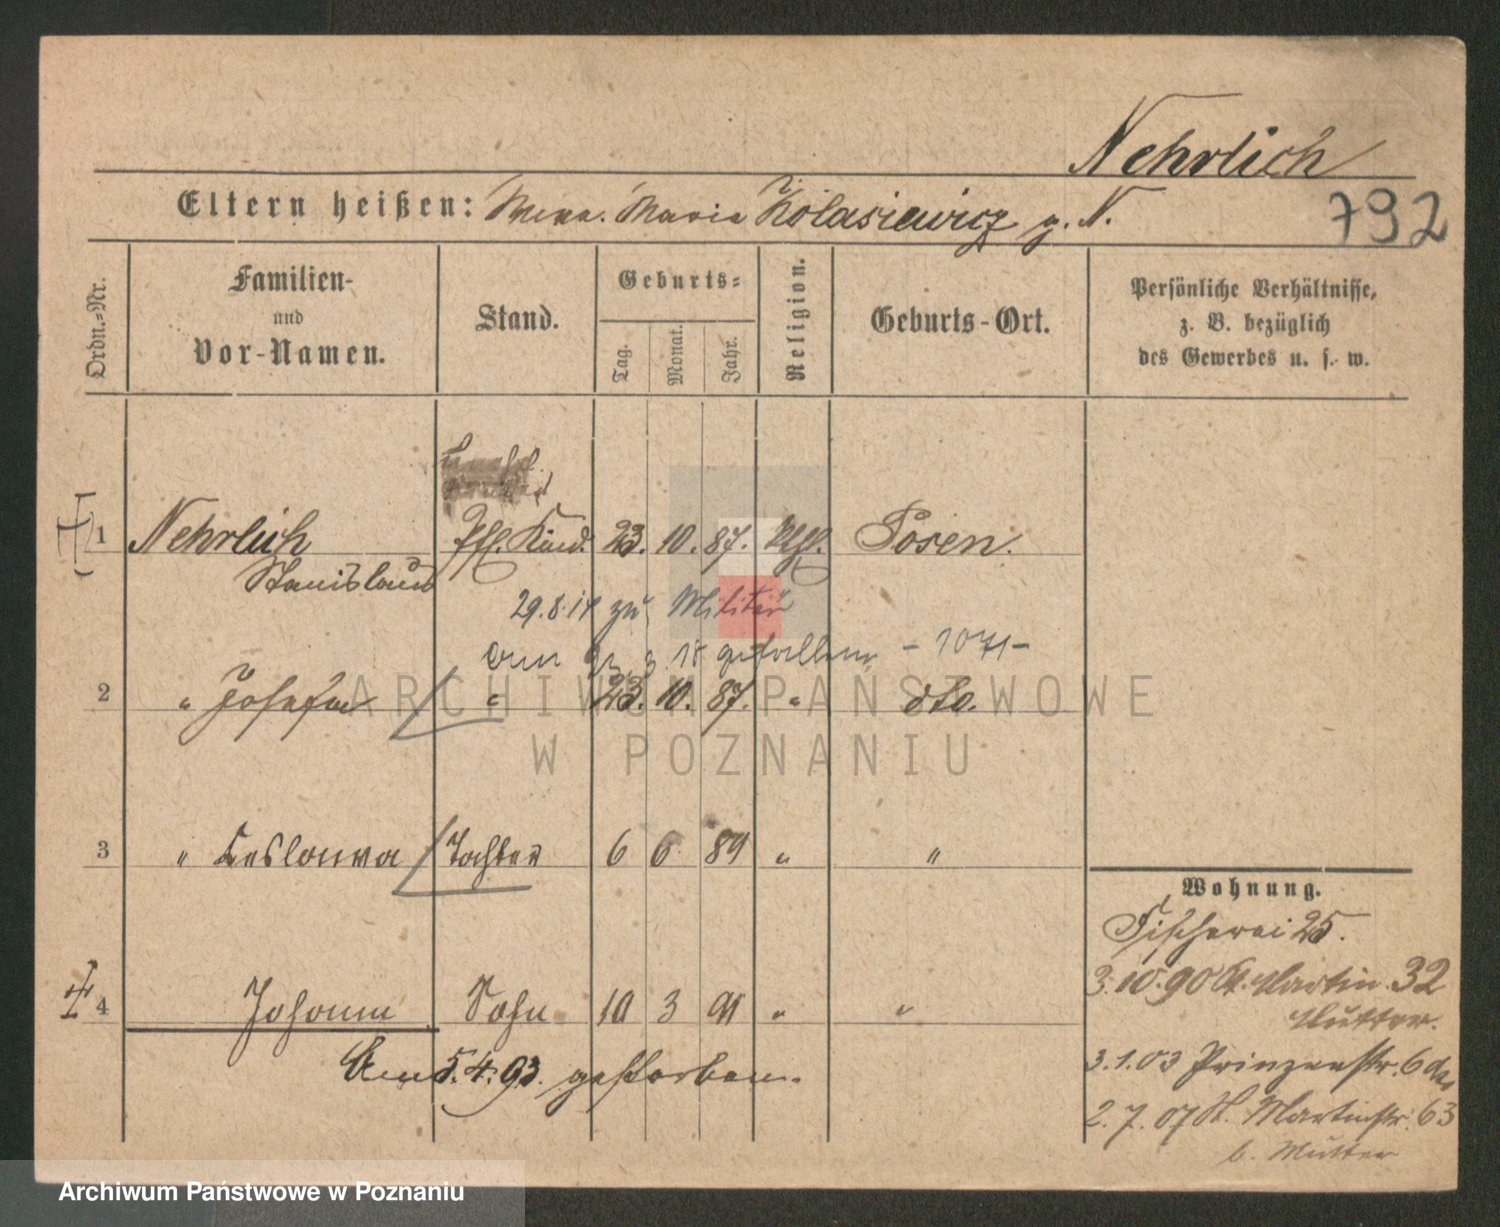 Nehrlich
Eltern heißen: Maria Kolasiewicz g. N.
792
Ordn.-Nr.
Familien-
und
Vor-Namen.
Stand.
Geburts-
Tag.
Monat.
Jahr.
Religion.
Geburts-Ort.
Persönliche Verhältnisse,
z. B. bezüglich
des Gewerbes u. s. w.
1 Nehrlich Kind. 23. 10. 87. Posen.
Stanislaus
29.8.14 zu Militär
gefallen - 1071-
2 " Josefa " 23. 10. 87. " dto.
3 " Ceslowa Tochter 6 6 89 " "
4 Johann Sohn 10 3 91 " "
Am 5.4.93. gestorben.
Wohnung.
Fischerei 25.
3.10.90 St. Martin 32
Mutter.
3.1.03 Prinzenstr. 6
2.7.07 St. Martinstr. 63
b. Mutter
ARCHIWUM PAŃSTWOWE
W POZNANIU
Archiwum Państwowe w Poznaniu